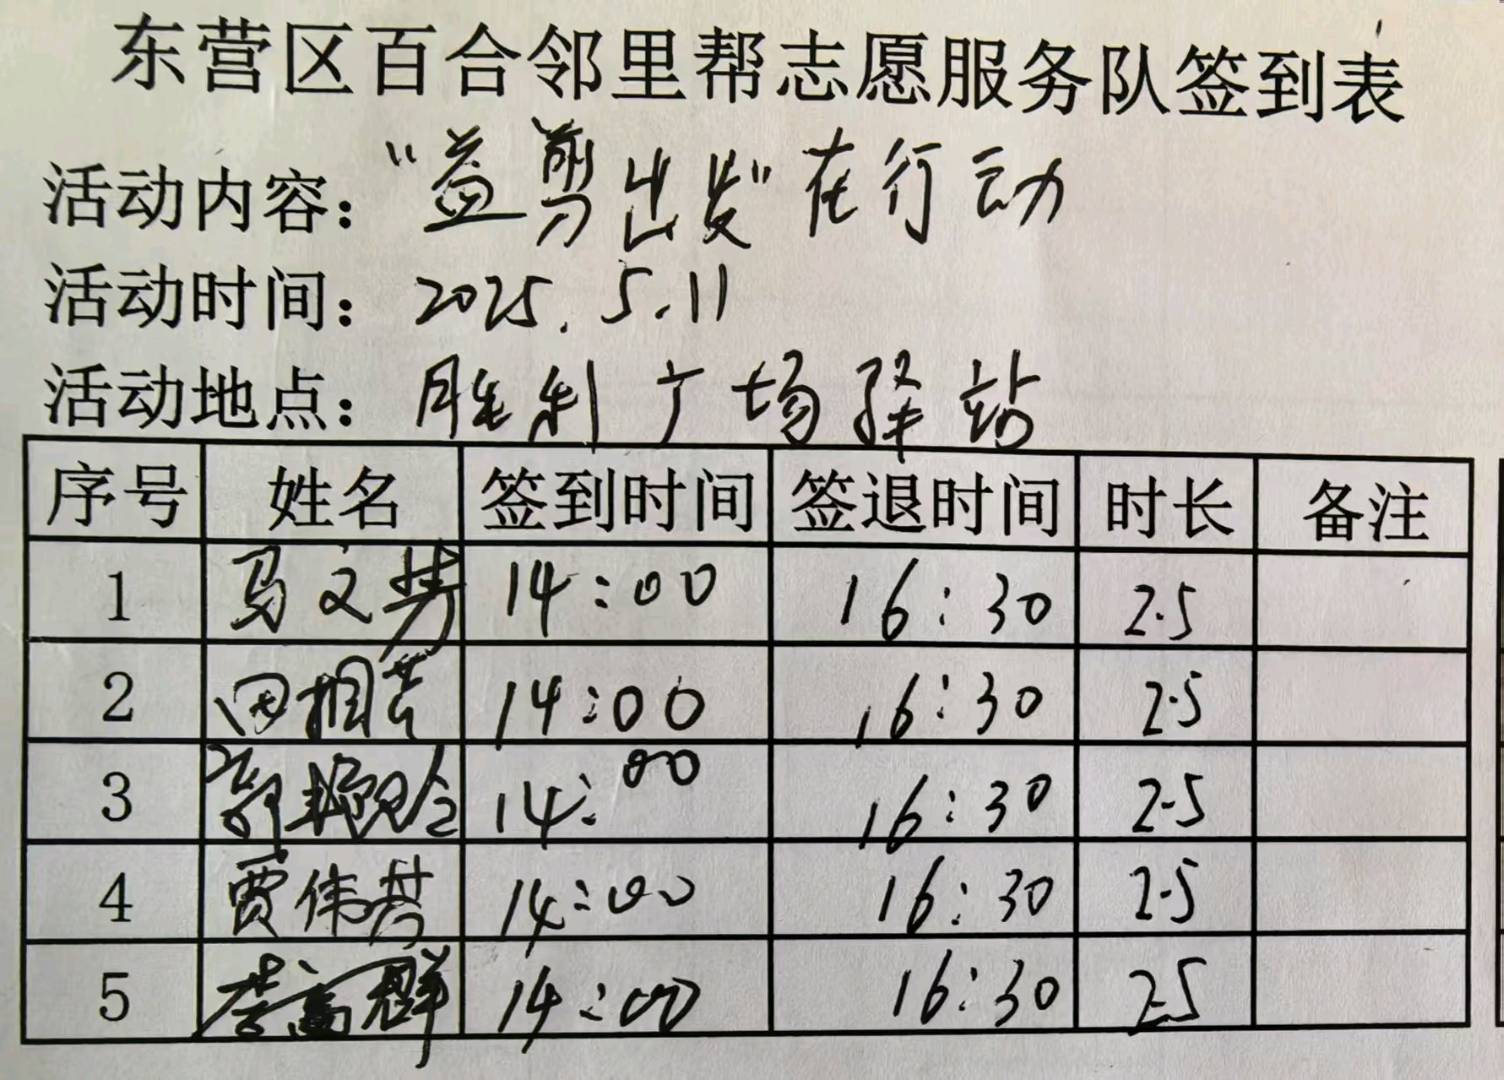 东营区百合邻里帮志愿服务队签到表
活动内容：“益剪出发”在行动
活动时间：2025.5.11
活动地点：胜利广场驿站
序号 姓名 签到时间 签退时间 时长 备注
1 马文芳 14:00 16:30 2.5
2 田相芸 14:00 16:30 2.5
3 14:00 16:30 2.5
4 贾伟芳 14:00 16:30 2.5
5 李富群 14:00 16:30 2.5